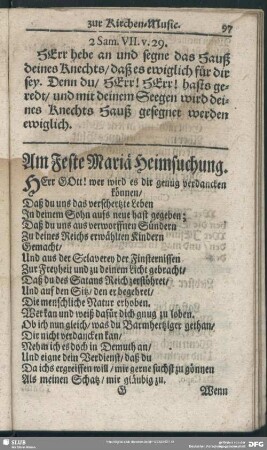 zur Kirchen-Music. 97
2 Sam. VII. v. 29.
HErr hebe an und segne das Hauß
deines Knechts/ daß es ewiglich für dir
sey. Denn du/ HErr! HErr! hasts ge-
redt/ und mit deinem Seegen wird dei-
nes Knechts Hauß gesegnet werden
ewiglich.
Am Feste Mariä Heimsuchung.
HErr GOtt! wer wird es dir genug verdancken
können/
Daß du uns das verschertzte Leben
In deinem Sohn aufs neue hast gegeben;
Daß du uns aus verworffnen Sündern
Zu deines Reichs erwählten Kindern
Gemacht/
Und aus der Sclaverey der Finsternissen
Zur Freyheit und zu deinem Licht gebracht/
Daß du des Satans Reich zerstöhret/
Und auf den Sitz/ den er begehret/
Die menschliche Natur erhoben.
Wer kan und weiß dafür dich gnug zu loben.
Ob ich nun gleich/ was du Barmhertziger gethan/
Dir nicht verdancken kan/
Nehm ich es doch in Demuth an/
Und eigne dein Verdienst/ daß du
Da ichs ergreiffen will/ mir gerne suchst zu gönnen
Als meinen Schatz/ mir gläubig zu.
G Wenn